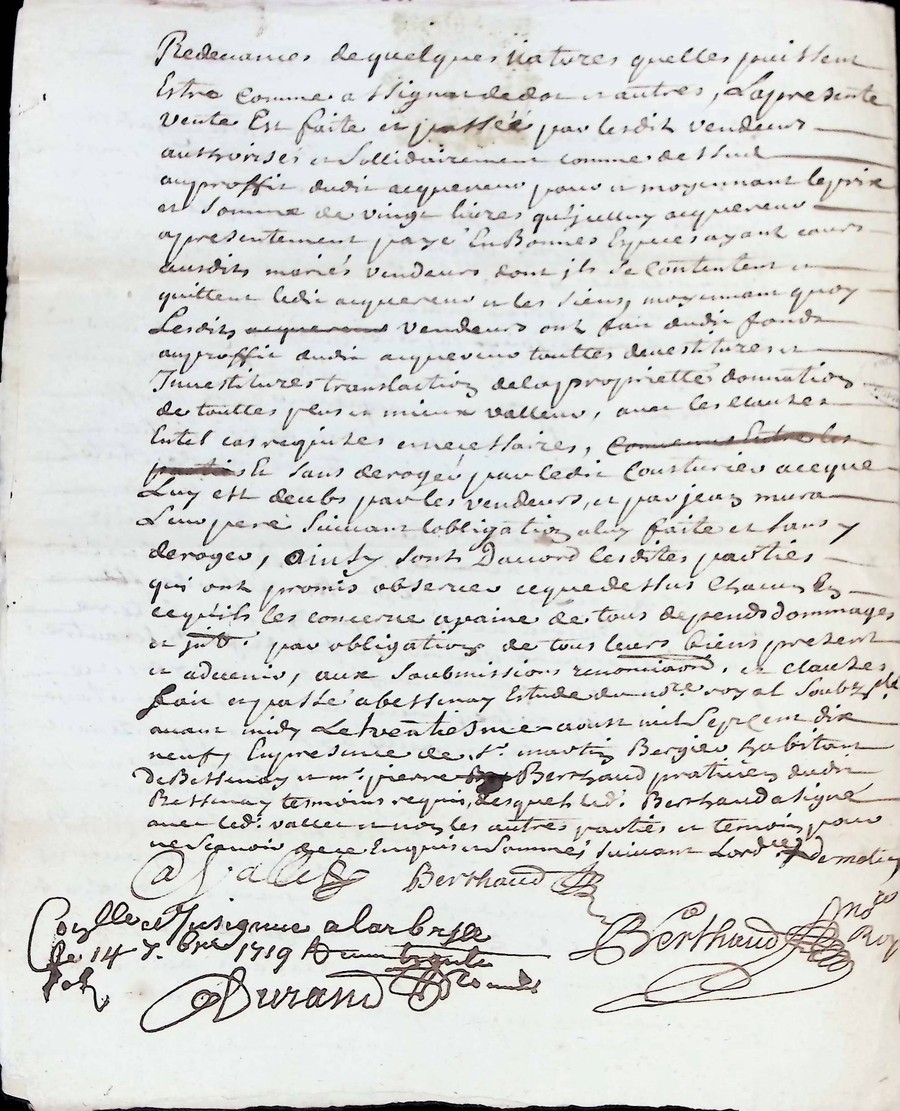 Redevances de quelques natures quelles puissent
Estre comme assignat de dot et autres, La presente
vente Est faite et passée par lesdits vendeurs
authorisés et sollidairement comme dessus
au proffit dudit acquereur pour et moyennant le prix
et somme de vingt livres qu'jcelluy acquereur
a presentement payé En Bonnes Especes ayant cours
ausdits mariés vendeurs dont jls se contentent et
quittent ledit acquereur et les siens, moyennant quoy
Lesdits acquereurs vendeurs ont fait dudit fonds
au proffit dudit acquereur touttes devestitures et
Investitures translaction de la proprietté donnation
de touttes plus et mieux valleur, avec les clauses
En tel cas requises et necessaires, convenus Entre les
parties Et sans deroger par ledit Cousturier a ce que
Luy est deub par les vendeurs, et par jean mura
Leur pere suivant lobligation a luy faite et sans y
deroger, ainsy sont Daccord lesdites parties
qui ont promis observer ce que dessus chacun En
ce qu'ils les concerne a paine de tous depends dommages
et jnts. par obligation de tous leurs biens present
et advenir, aux soubmissions renonciaons. et clauses
fait et passé a bessenay Estude du nore royal soubzsné
avant midy Le trentiesme aoust mil sept cent dix
neuf, En presence de sr. martin Bergier habitant
De Bessenay et mr. pierre Berthaud praticien dudit
Bessenay tesmoins requis, desquels led. Berthaud a signé
avec led. vallet et non les autres parties et temoin pour
ne scavoir de ce Enquis et sommés suivant Lordce
Berthaud
Conllé et Insignué a larbresle
Le 14 7.bre 1719
Berthaud nore Roy
Durand